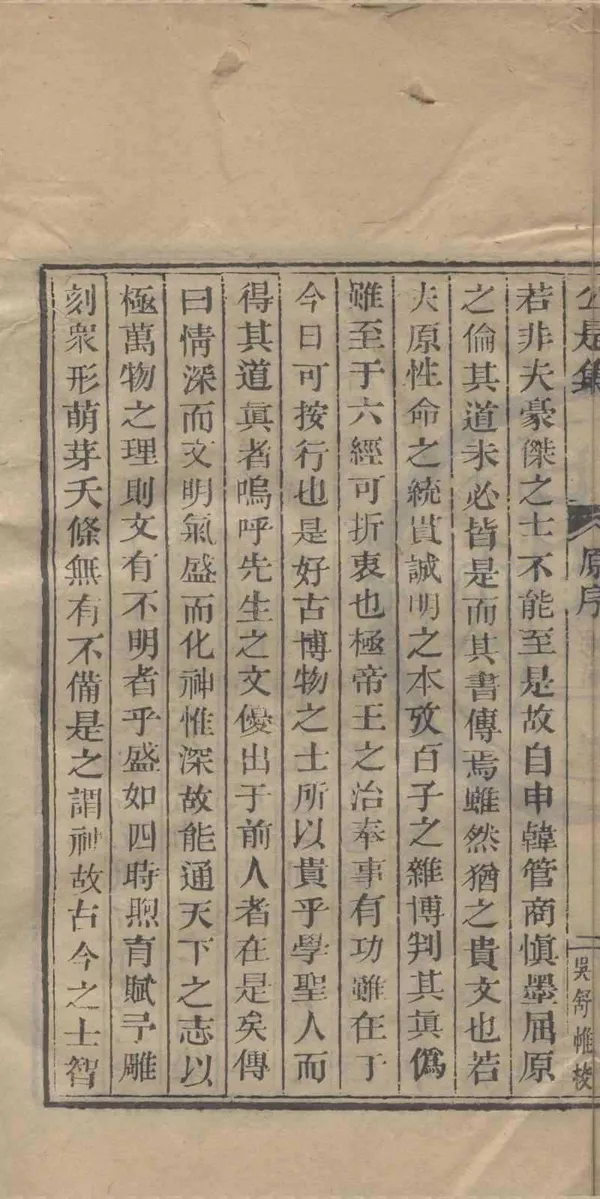 公是集
原序
吳舒帷校
若非夫豪傑之士不能至是故自申韓管商愼墨屈原
之倫其道未必皆是而其書傳焉雖然猶之貴文也若
夫原性命之統貫誠明之本攷百子之雜博判其眞僞
雖至于六經可折衷也極帝王之治奉事有功雖在于
今日可按行也是好古博物之士所以貴乎學聖人而
得其道眞者嗚呼先生之文優出于前人者在是矣傳
曰情深而文明氣盛而化神惟深故能通天下之志以
極萬物之理則文有不明者乎盛如四時煦育賦予雕
刻衆形萌芽夭條無有不備是之謂神故古今之士智